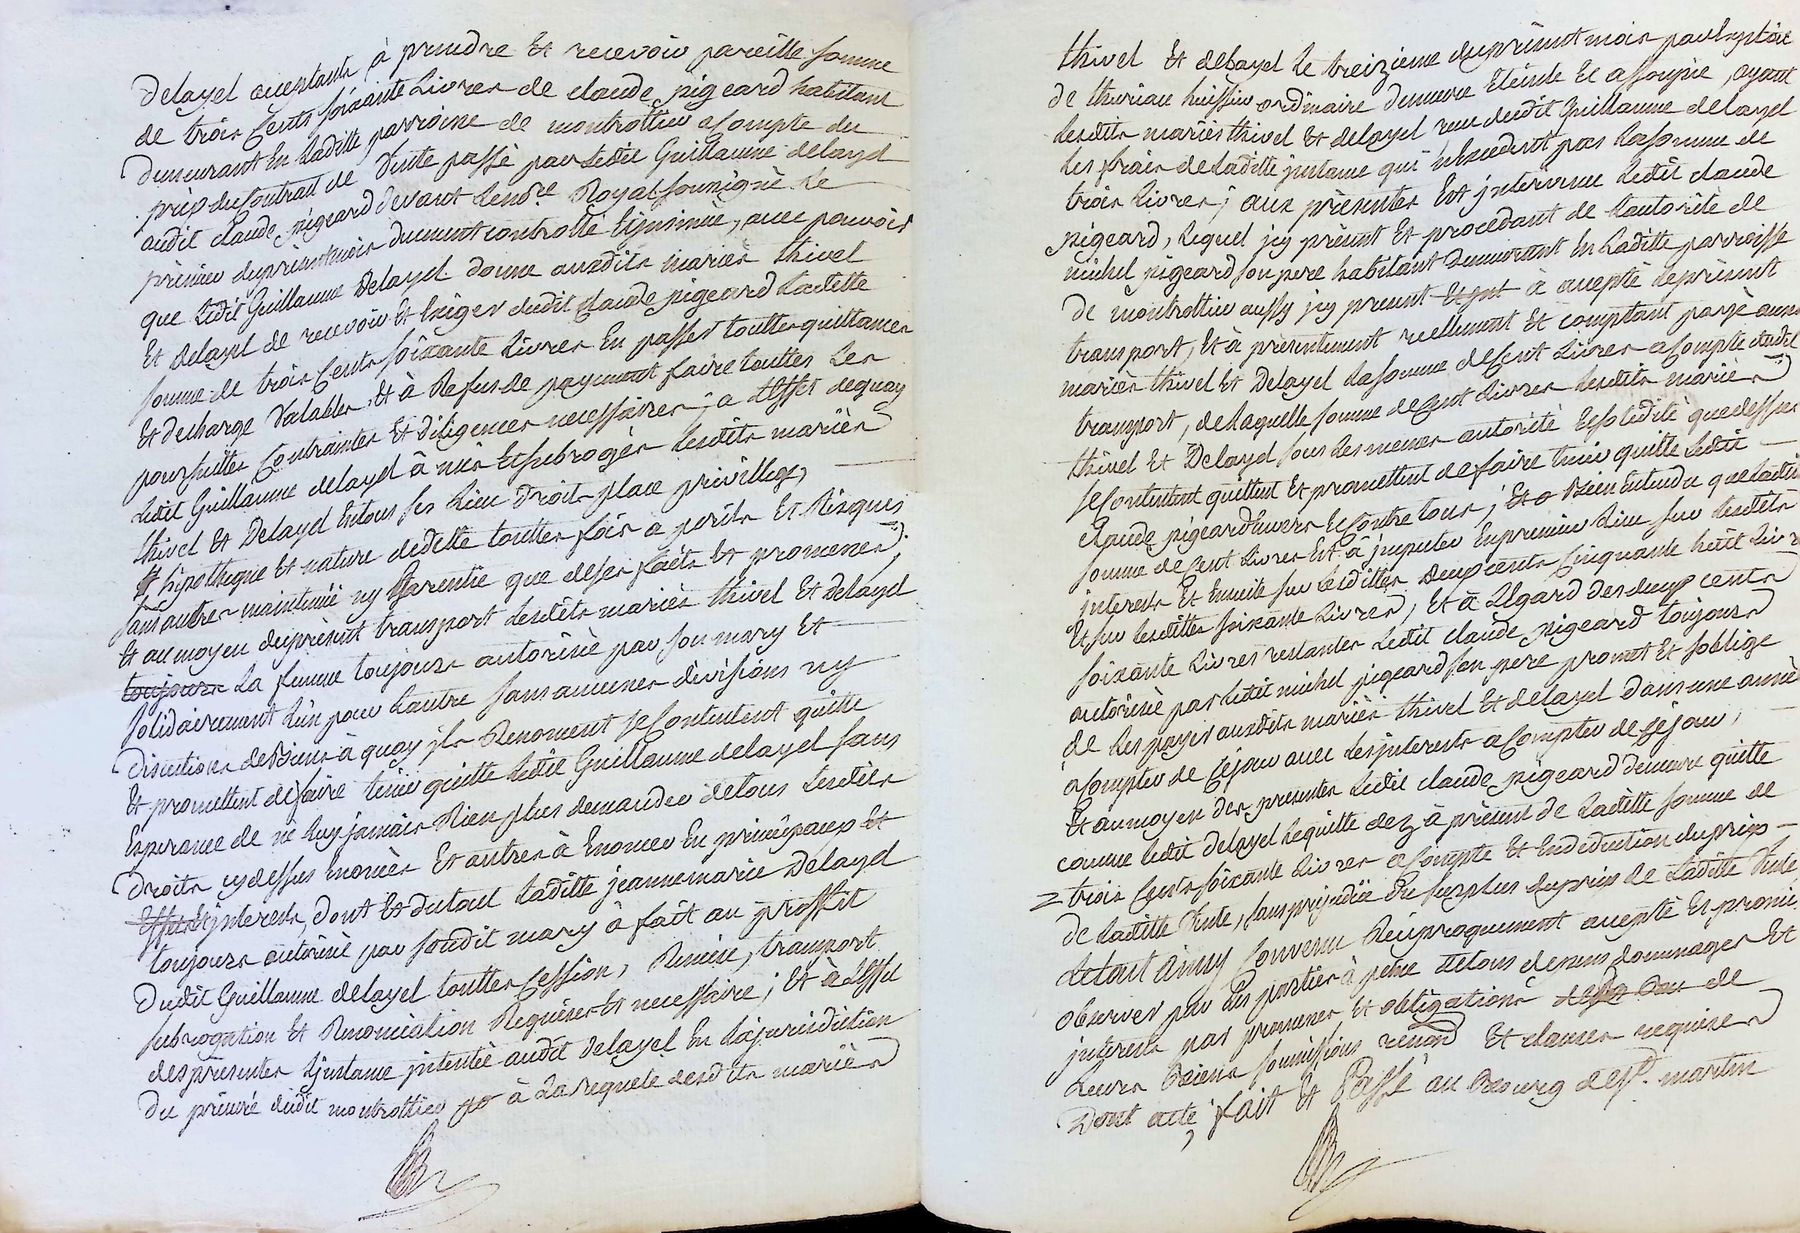 Delayel acceptants à prendre Et recevoir pareille somme
de trois Cents soixante Livres de claude pigeard habitant
demeurant En Laditte parroisse de montrottier a Compte du
prix du Contrat de Vente passé par Ledit Guillaume delayel
audit claude pigeard devant Le no.re Royal soussigné le
premier du present mois duement controllé Et insinué, avec pouvoir
que Ledit Guillaume Delayel donne auxdits mariés thivel
Et Delayel de recevoir Et Exiger dudit claude pigeard Laditte
somme de trois Cents soixante Livres En passer touttes quittances
Et decharge Valables, Et à Refus de payement faire touttes Les
poursuittes Contraintes Et diligences necessaires; a L'effet dequoy
Ledit Guillaume delayel à mis Et subrogés Lesdits mariés
thivel Et Delayel En tous ses Lieu Droit place privillege,
hipotheque Et nature de dette touttes fois a perils Et Risques
sans autre maintenüe ny Garentie que de ses faits Et promesses;
Et au moyen du present transport Lesdits mariés thivel Et Delayel
toujours La femme toujours autorisée par son mary Et
solidairement L'un pour L'autre sans aucunes divisions ny
Discutions de Biens à quoy ils Renoncent se Contentent quitte
Et promettent de faire tenir quitte Ledit Guillaume delayel sans
Esperance de ne Luy jamais Rien plus demander de tous Lesdits
Droits cy dessus Enoncés Et autres à Enoncer En principaux Et
Effets Et interests, dont Et du tout Laditte jeanne marie Delayel
toujours autorisée par sondit mary à fait au proffit
Dudit Guillaume delayel touttes Cession, Remise, transport
subrogation Et Renonciation Requises Et necessaire; Et à L'effet
des presentes L'instance intentée audit Delayel En La jurisdiction
du prieuré dudit montrottier à La requete desdits mariés
thivel Et delayel Le treizieme du present mois par Exploit
de huissier ordinaire demeure Eteinte Et assoupie, ayant
Lesdits mariés thivel Et delayel reçu dudit Guillaume delayel
Les frais de Laditte instance qui n'Excedent pas La somme de
trois Livres; aux presentes Est intervenu Ledit claude
pigeard, Lequel icy present Et procedant de L'autorité de
michel pigeard son pere habitant demeurant En Laditte parroisse
de montrottier aussy icy present Et qui à accepté Le present
transport, Et à presentement reellement Et comptant payé auxd
mariés thivel Et Delayel La somme de Cent Livres a Compte dudit
transport, de Laquelle somme de Cent Livres Lesdits mariés
thivel Et Delayel sous Les memes autorité Et solidité que dessus
se Contentent quittent Et promettent de faire tenir quitte Ledit
claude pigeard Envers Et Contre tous; Bien Entendu que Laditte
somme de Cent Livres Est à imputer En premier Lieu sur Lesdits
interests Et Ensuite sur Lesdittes Deux Cents Cinquante huit Livres
Et sur Lesdittes soixante Livres, Et à L'Egard des deux cents
soixante Livres restantes Ledit claude pigeard toujours
autorisé par Ledit michel pigeard son pere promet Et s'oblige
de Les payer auxdits mariés thivel Et delayel dans une année
a Compter de Cejour avec Les interests a Compter de Cejour,
Et au moyen des presentes Ledit claude pigeard demeure quitte
comme Ledit Delayel Le quitte dez à present de Laditte somme de
trois Cents soixante Livres a Compte Et En deduction du prix
de Laditte Vente, sans prejudice Du surplus du prix de Laditte Vente,
Le tout ainsy Convenu Reciproquement accepté Et promis
observer par Les parties à peine de tous depens dommages Et
interests par promesses Et obligations de
Leurs Biens soumissions renond Et clauses requises
Dont acte, fait Et Passé au Bourg de S.t martin